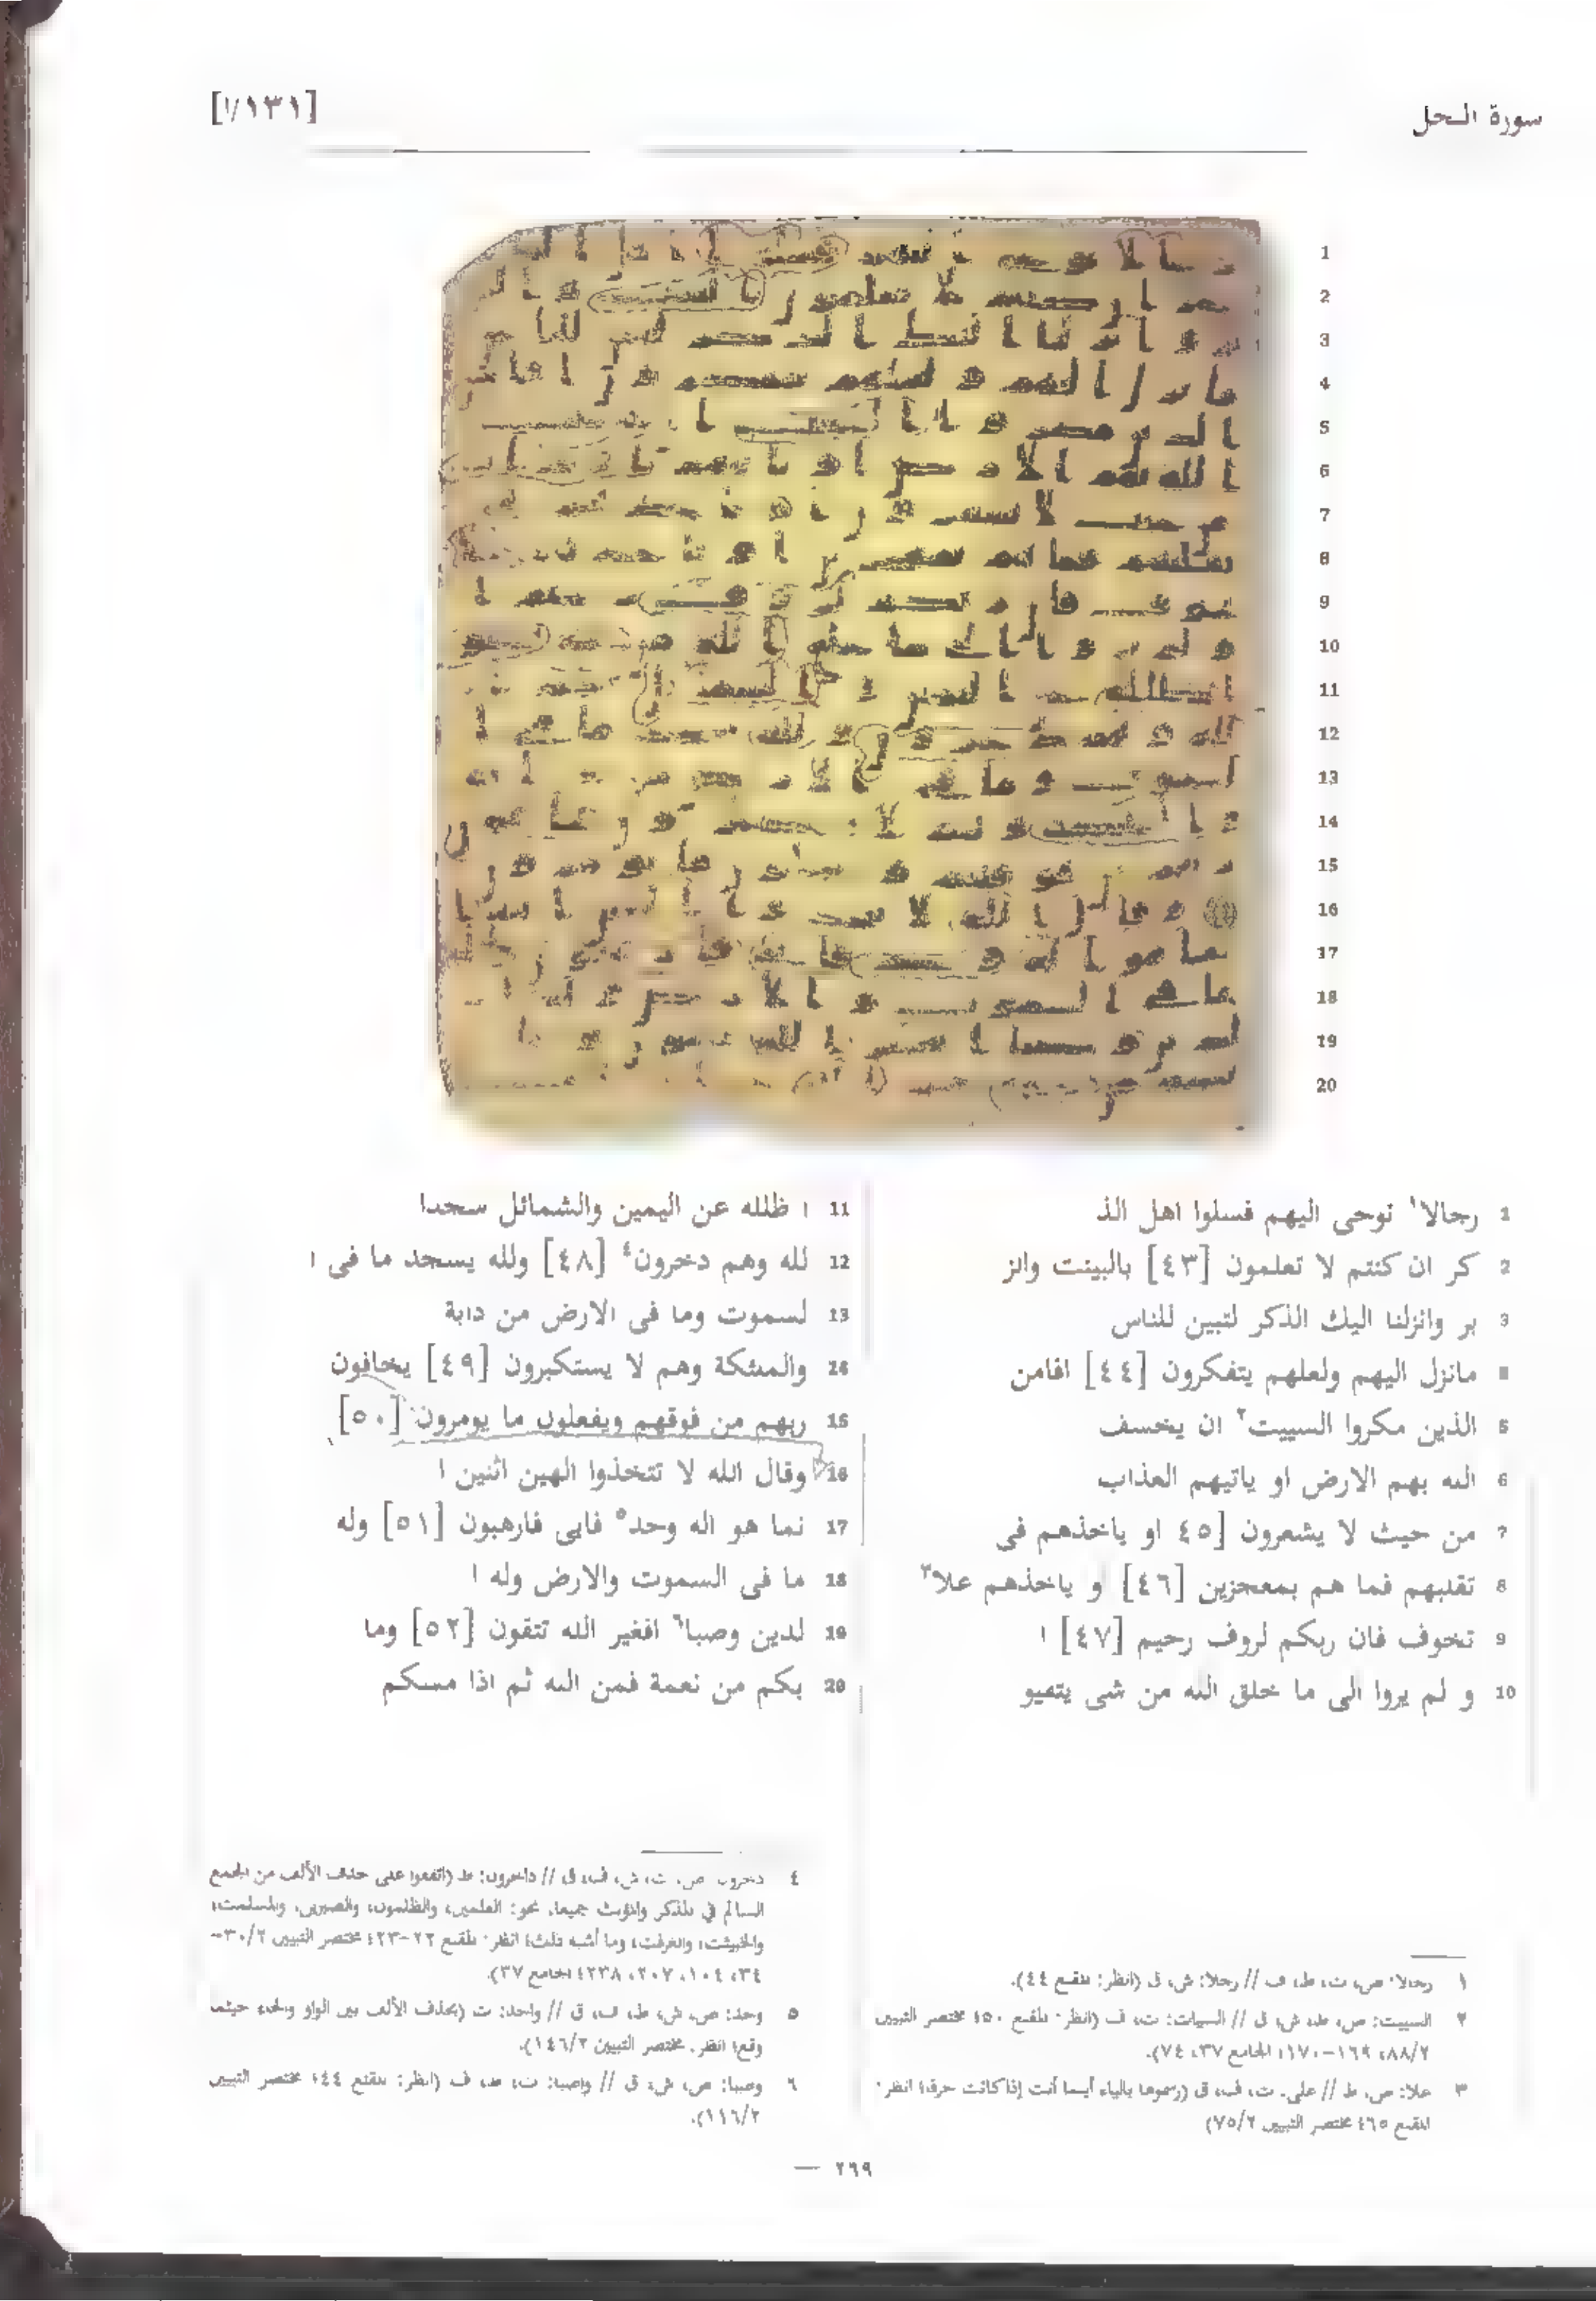 سورة النحل
[١٣١/ا]
1 رجالا١ نوحى اليهم فسلوا اهل الذ
2 كر ان كنتم لا تعلمون [٤٣] بالبينت والز
3 بر وانزلنا اليك الذكر لتبين للناس
4 مانزل اليهم ولعلهم يتفكرون [٤٤] افامن
5 الذين مكروا السييت٢ ان يخسف
6 الله بهم الارض او ياتيهم العذاب
7 من حيث لا يشعرون [٤٥ او ياخذهم فى
8 تقلبهم فما هم بمعجزين [٤٦] و ياخذهم علا٣
9 تخوف فان ربكم لروف رحيم [٤٧] ا
10 و لم يروا الى ما خلق الله من شى يتفيو
11 ا ظلله عن اليمين والشمائل سجدا
12 لله وهم دخرون٤ [٤٨] ولله يسجد ما فى ا
13 لسموت وما فى الارض من دابة
14 والملئكة وهم لا يستكبرون [٤٩] يخافون
15 ربهم من فوقهم ويفعلون ما يومرون [٥٠]
16 وقال الله لا تتخذوا الهين اثنين ا
17 نما هو اله وحد٥ فايى فارهبون [٥١] وله
18 ما فى السموت والارض وله ا
19 لدين وصبا٦ افغير الله تتقون [٥٢] وما
20 بكم من نعمة فمن الله ثم اذا مسكم
١ رجالا: ص، ت، ط، ف // رجلا: ش، ق (انظر: المقنع ٤٤).
٢ السييت: ص، ط، ش، ق // السيات: ت، ف (انظر: المقنع ٥٠؛ مختصر التبيين
٨٨/٢، ١٦٩-١٧٠؛ الجامع ٣٧، ٧٤).
٣ علا: ص، ط // على: ت، ف، ق (رسموها بالياء أينما أتت إذا كانت حرفا؛ انظر:
المقنع ٦٥؛ مختصر التبيين ٧٥/٢)
٤ دخرون: ص، ت، ش، ف، ق // داخرون: ط (اتفقوا على حذف الألف من الجمع
السالم في المذكر والمؤنث جميعا، نحو: العلمين، والظلمون، والصبرين، والمسلمت،
والخبيثت، والغرفت، وما أشبه ذلك؛ انظر: المقنع ٢٢-٢٣؛ مختصر التبيين ٣٠/٢-
٣٤، ١٠٤، ٢٠٧، ٢٣٨؛ الجامع ٣٧).
٥ وحد: ص، ش، ط، ف، ق // واحد: ت (بحذف الألف بين الواو والحاء حيثما
وقع؛ انظر: مختصر التبيين ١٤٦/٢).
٦ وصبا: ص، ش، ق // واصبا: ت، ط، ف (انظر: المقنع ٤٤؛ مختصر التبيين
١١٦/٢).
٢٦٩ —